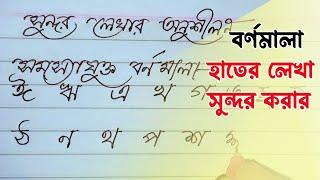 সুন্দর লেখার অনুশীলন
সমস্যাযুক্ত বর্ণমালা
ঈ ঋ এ খ গ
ঠ ন থ প শ
বর্ণমালা
হাতের লেখা
সুন্দর করার